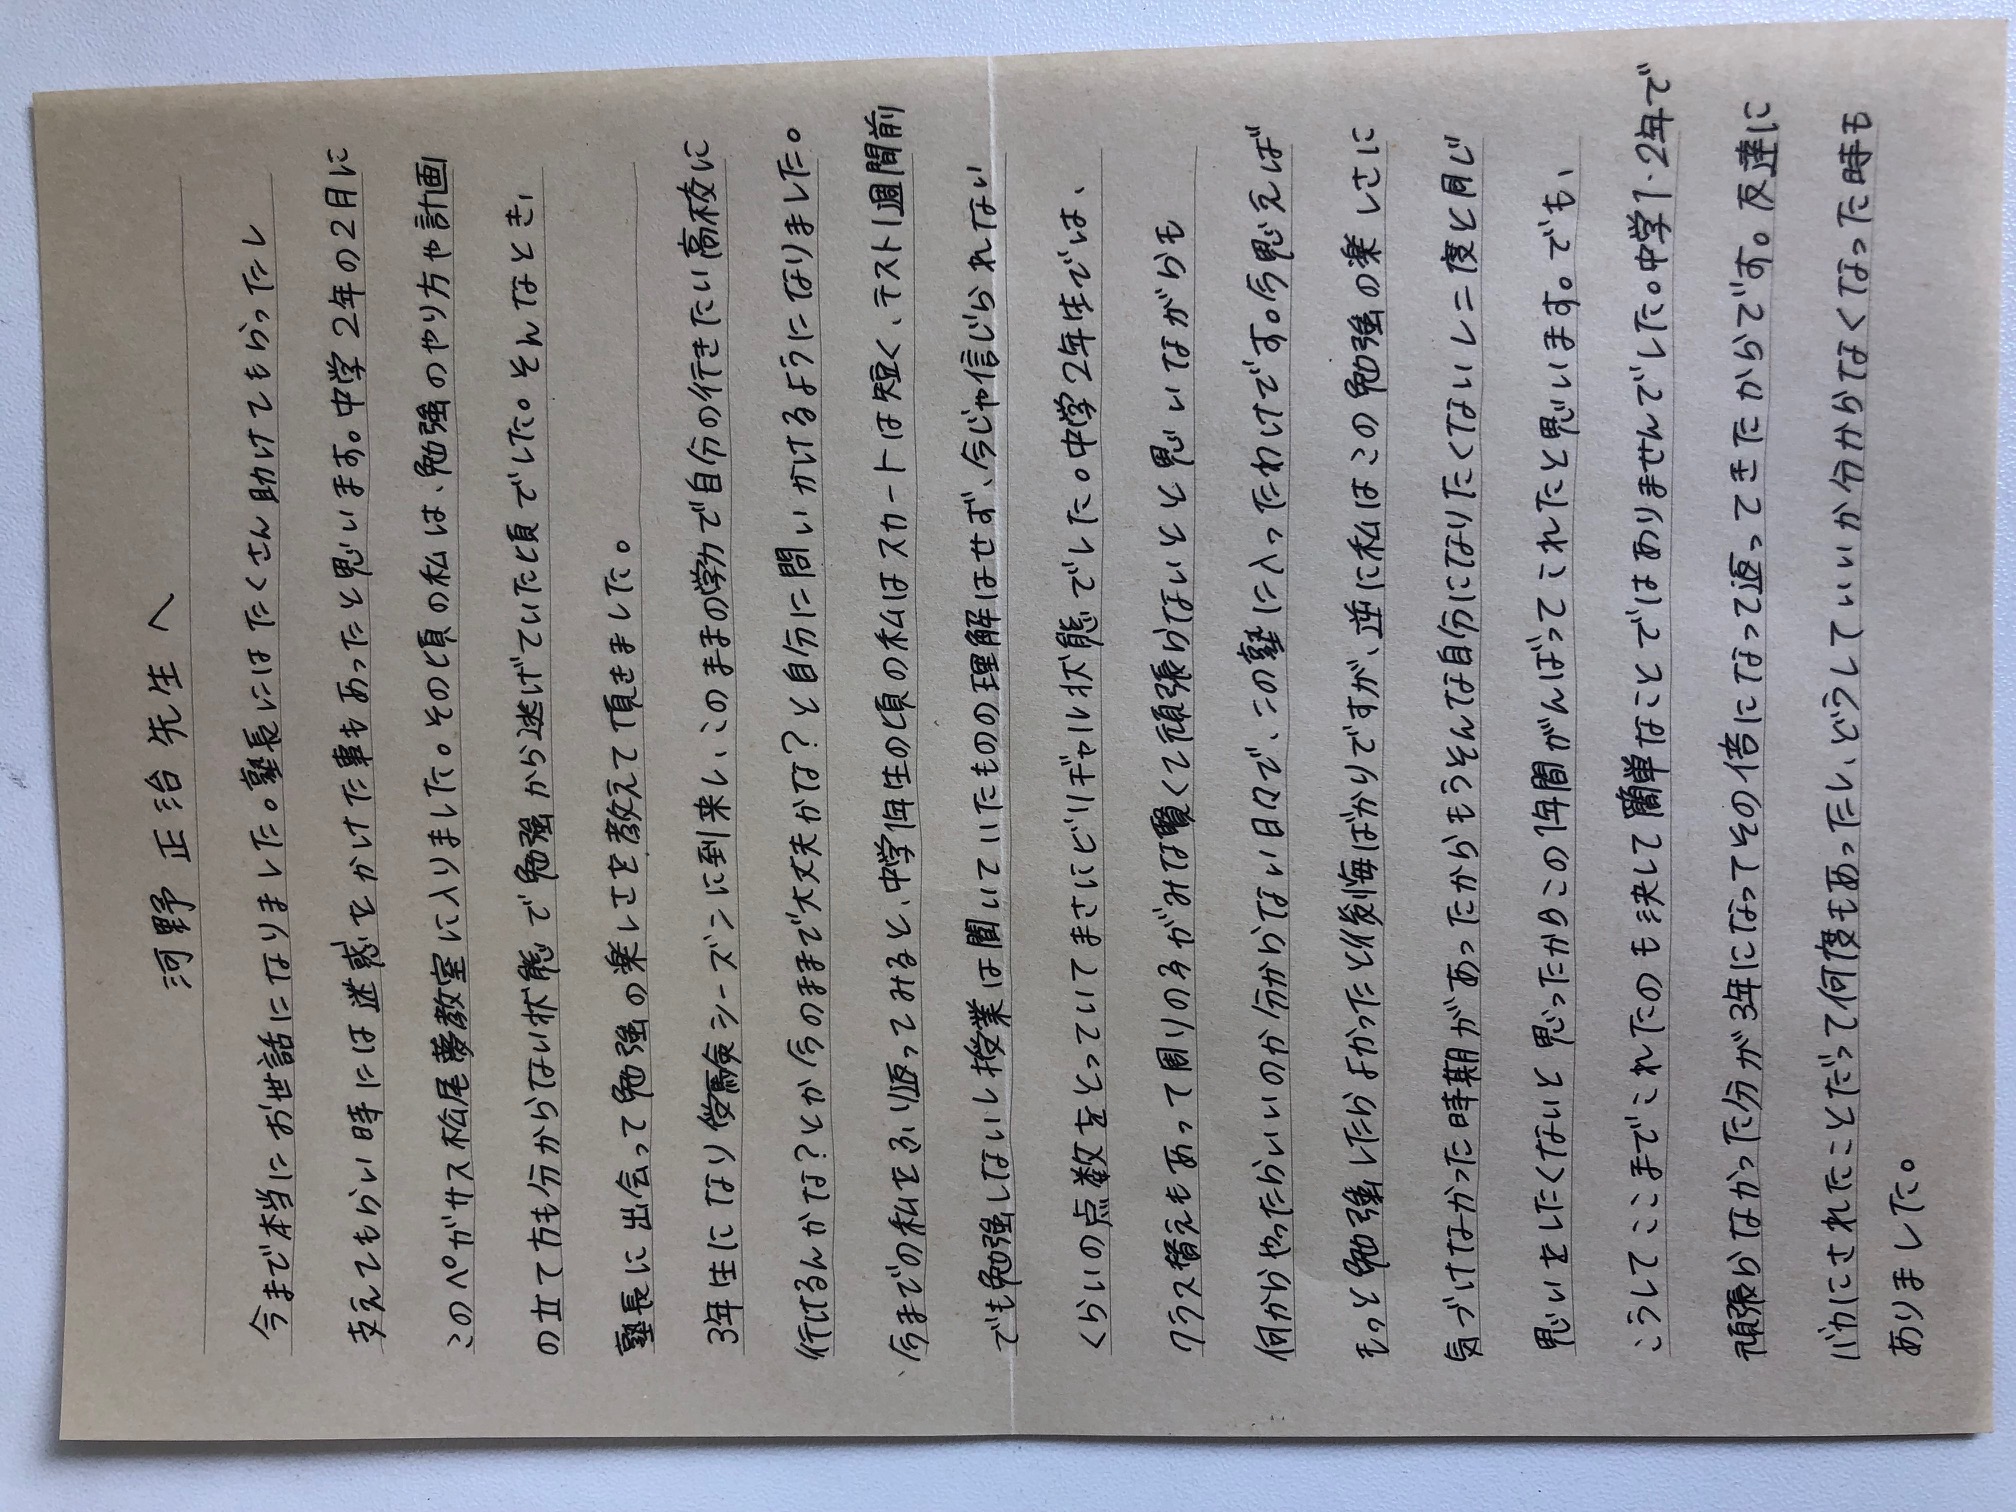 河野正治先生へ
今まで本当にお世話になりました。塾長にはたくさん助けてもらったし
支えてもらい時には迷惑をかけた事もあったと思います。中学2年の2月に
このペガサス松尾夢教室に入りました。その頃の私は、勉強のやり方や計画
の立て方も分からない状態で勉強から逃げていた頃でした。そんなとき、
塾長に出会って勉強の楽しさを教えて頂きました。
3年生になり受験シーズンに到来し、このままの学力で自分の行きたい高校に
行けるんかな?とか今のままで大丈夫かな?と自分に問いかけるようになりました。
今までの私をふり返ってみると、中学1年生の頃の私はスカートは短く、テスト1週間前
でも勉強しないし授業は聞いていたものの理解はせず、今じゃ信じられない
くらいの点数をとっていてまさにビリギャル状態でした。中学2年生では、
クラス替えもあって周りの子がみな賢くて頑張らないとと思いながらも
何からやったらいいのか分からない日々で、この塾に入ったわけです。今思えば
もっと勉強したらよかったと後悔ばかりですが、逆に私はこの勉強の楽しさに
気づけなかった時期があったからもうそんな自分になりたくないし二度と同じ
思いをしたくないと思ったからこの1年間がんばってこれたと思います。でも、
こうしてここまでこれたのも決して簡単なことではありませんでした。中学1・2年で
頑張らなかった分が3年になってその倍になって返ってきたからです。友達に
バカにされたことだって何度もあったし、どうしていいか分からなくなった時も
ありました。